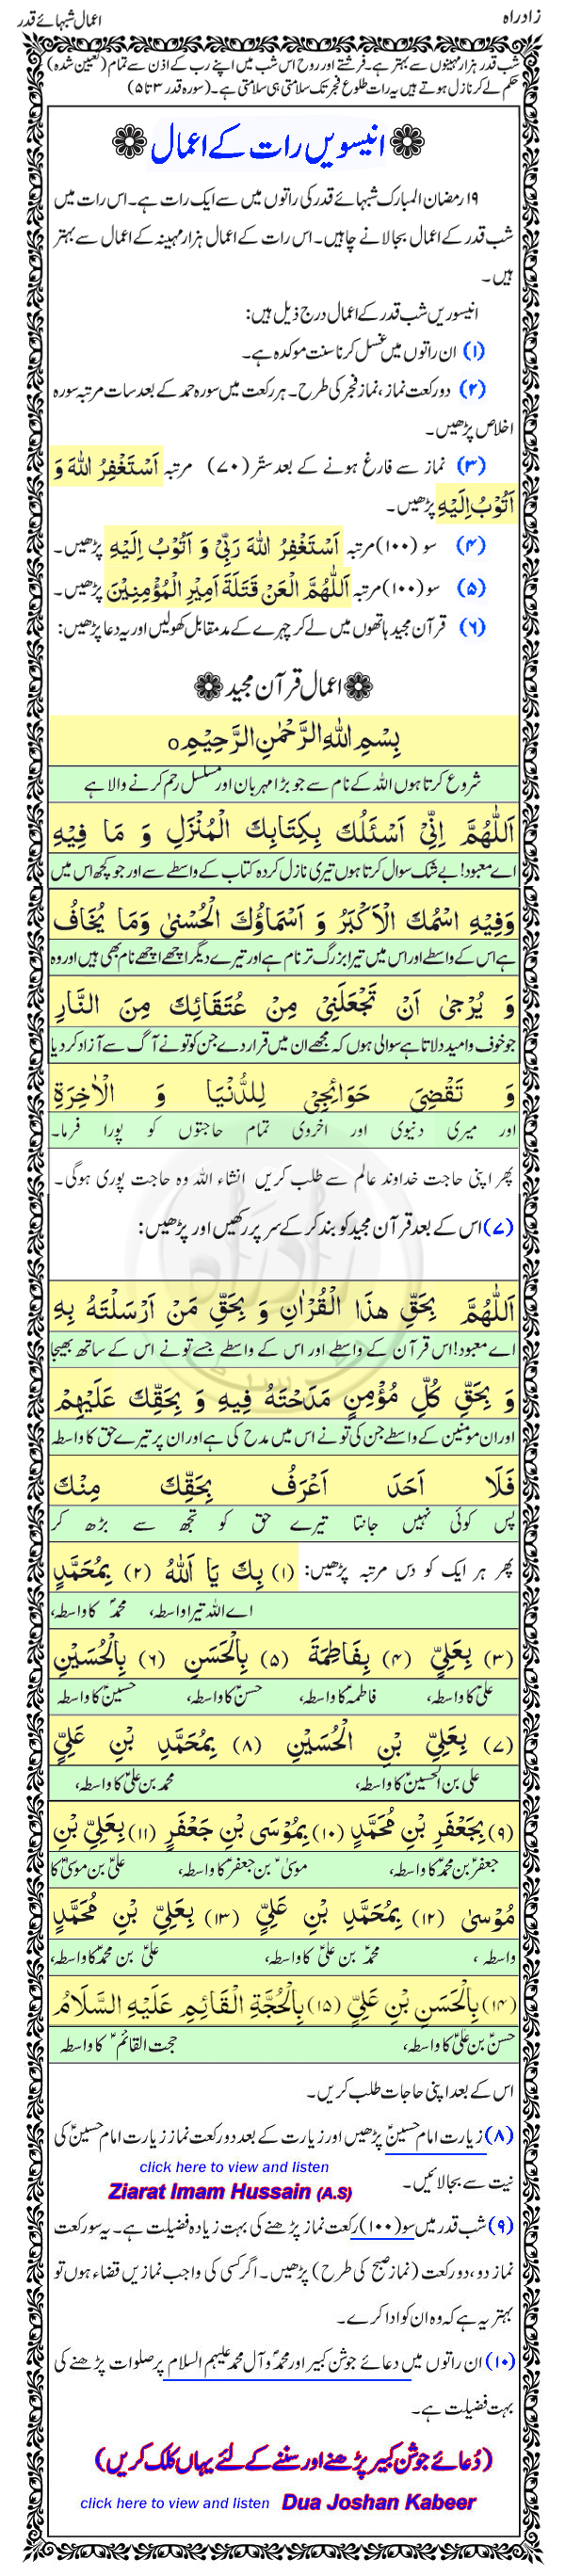 زادراہ
اعمال شبہائے قدر
شب قدر ہزار مہینوں سے بہتر ہے۔ فرشتے اور روح اس شب میں اپنے رب کے اذن سے تمام (تعیین شدہ)
حکم لے کر نازل ہوتے ہیں یہ رات طلوع فجر تک سلامتی ہی سلامتی ہے۔ (سورہ قدر ۳ تا ۵)
انیسویں رات کے اعمال
۱۹ رمضان المبارک شبہائے قدر کی راتوں میں سے ایک رات ہے۔ اس رات میں
شب قدر کے اعمال بجالانے چاہیں۔ اس رات کے اعمال ہزار مہینہ کے اعمال سے بہتر
ہیں۔
انیسوریں شب قدر کے اعمال درج ذیل ہیں:
(۱) ان راتوں میں غسل کرنا سنت موکدہ ہے۔
(۲) دو رکعت نماز، نماز فجر کی طرح۔ ہر رکعت میں سورہ حمد کے بعد سات مرتبہ سورہ
اخلاص پڑھیں۔
(۳) نماز سے فارغ ہونے کے بعد ستّر (۷۰) مرتبہ اَسْتَغْفِرُ اللهَ وَ
اَتُوْبُ اِلَيْهِ پڑھیں۔
(۴) سو (۱۰۰) مرتبہ اَسْتَغْفِرُ اللهَ رَبِّيْ وَ اَتُوْبُ اِلَيْهِ پڑھیں۔
(۵) سو (۱۰۰) مرتبہ اَللّٰهُمَّ الْعَنْ قَتَلَةَ اَمِيْرِ الْمُؤْمِنِيْنَ پڑھیں۔
(۶) قرآن مجید ہاتھوں میں لے کر چہرے کے مد مقابل کھولیں اور یہ دعا پڑھیں:
اعمال قرآن مجید
بِسْمِ اللهِ الرَّحْمٰنِ الرَّحِيْمِ ٥
شروع کرتا ہوں اللہ کے نام سے جو بڑا مہربان اور مسلسل رحم کرنے والا ہے
اَللّٰهُمَّ اِنِّيْ اَسْئَلُكَ بِكِتَابِكَ الْمُنْزَلِ وَ مَا فِيْهِ
اے معبود! بے شک سوال کرتا ہوں تیری نازل کردہ کتاب کے واسطے سے اور جو کچھ اس میں
وَفِيْهِ اسْمُكَ الْاَكْبَرُ وَ اَسْمَاؤُكَ الْحُسْنٰى وَمَا يُخَافُ
ہے اس کے واسطے اور اس میں تیرا بزرگ تر نام ہے اور تیرے دیگر اچھے اچھے نام بھی ہیں اور وہ
وَ يُرْجٰى اَنْ تَجْعَلَنِيْ مِنْ عُتَقَائِكَ مِنَ النَّارِ
جو خوف و امید دلاتا ہے سوالی ہوں کہ مجھے ان میں قرار دے جن کو تو نے آگ سے آزاد کر دیا
وَ تَقْضِيَ حَوَائِجِيْ لِلدُّنْيَا وَ الْاٰخِرَةِ
اور میری دنیوی اور اخروی تمام حاجتوں کو پورا فرما۔
پھر اپنی حاجت خداوند عالم سے طلب کریں انشاء اللہ وہ حاجت پوری ہوگی۔
(۷) اس کے بعد قرآن مجید کو بند کر کے سر پر رکھیں اور پڑھیں:
اَللّٰهُمَّ بِحَقِّ هٰذَا الْقُرْاٰنِ وَ بِحَقِّ مَنْ اَرْسَلْتَهُ بِهِ
اے معبود! اس قرآن کے واسطے اور اس کے واسطے جسے تو نے اس کے ساتھ بھیجا
وَ بِحَقِّ كُلِّ مُؤْمِنٍ مَدَحْتَهُ فِيْهِ وَ بِحَقِّكَ عَلَيْهِمْ
اور ان مومنین کے واسطے جن کی تو نے اس میں مدح کی ہے اور ان پر تیرے حق کا واسطہ
فَلَا اَحَدَ اَعْرَفُ بِحَقِّكَ مِنْكَ
پس کوئی نہیں جانتا تیرے حق کو تجھ سے بڑھ کر
پھر ہر ایک کو دس مرتبہ پڑھیں: (۱) بِكَ يَا اَللهُ (۲) بِمُحَمَّدٍ
اے اللہ تیرا واسطہ، محمدؐ کا واسطہ،
(۳) بِعَلِيٍّ (۴) بِفَاطِمَةَ (۵) بِالْحَسَنِ (۶) بِالْحُسَيْنِ
علیؑ کا واسطہ، فاطمہؑ کا واسطہ، حسنؑ کا واسطہ، حسینؑ کا واسطہ
(۷) بِعَلِيِّ بْنِ الْحُسَيْنِ (۸) بِمُحَمَّدِ بْنِ عَلِيٍّ
علی بن الحسینؑ کا واسطہ، محمد بن علیؑ کا واسطہ،
(۹) بِجَعْفَرِ بْنِ مُحَمَّدٍ (۱۰) بِمُوْسَى بْنِ جَعْفَرٍ (۱۱) بِعَلِيِّ بْنِ
جعفر بن محمدؑ کا واسطہ، موسیٰؑ بن جعفر کا واسطہ، علیؑ بن موسیٰؑ کا
مُوْسٰى (۱۲) بِمُحَمَّدِ بْنِ عَلِيٍّ (۱۳) بِعَلِيِّ بْنِ مُحَمَّدٍ
واسطہ، محمدؑ بن علیؑ کا واسطہ، علیؑ بن محمدؑ کا واسطہ،
(۱۴) بِالْحَسَنِ بْنِ عَلِيٍّ (۱۵) بِالْحُجَّةِ الْقَائِمِ عَلَيْهِ السَّلَامُ
حسنؑ بن علیؑ کا واسطہ، حجت القائمؑ کا واسطہ
اس کے بعد اپنی حاجات طلب کریں۔
(۸) زیارت امام حسینؑ پڑھیں اور زیارت کے بعد دو رکعت نماز زیارت امام حسینؑ کی
نیت سے بجالائیں۔ click here to view and listen
Ziarat Imam Hussain (A.S)
(۹) شب قدر میں سو (۱۰۰) رکعت نماز پڑھنے کی بہت زیادہ فضیلت ہے۔ یہ سو رکعت
نماز دو، دو رکعت (نماز صبح کی طرح) پڑھیں۔ اگر کسی کی واجب نمازیں قضاء ہوں تو
بہتر یہ ہے کہ وہ ان کو ادا کرے۔
(۱۰) ان راتوں میں دعائے جوشن کبیر اور محمدؐ و آل محمد علیہم السلام پر صلوات پڑھنے کی
بہت فضیلت ہے۔
(دُعائے جوشن کبیر پڑھنے اور سننے کے لئے یہاں کلک کریں)
click here to view and listen Dua Joshan Kabeer